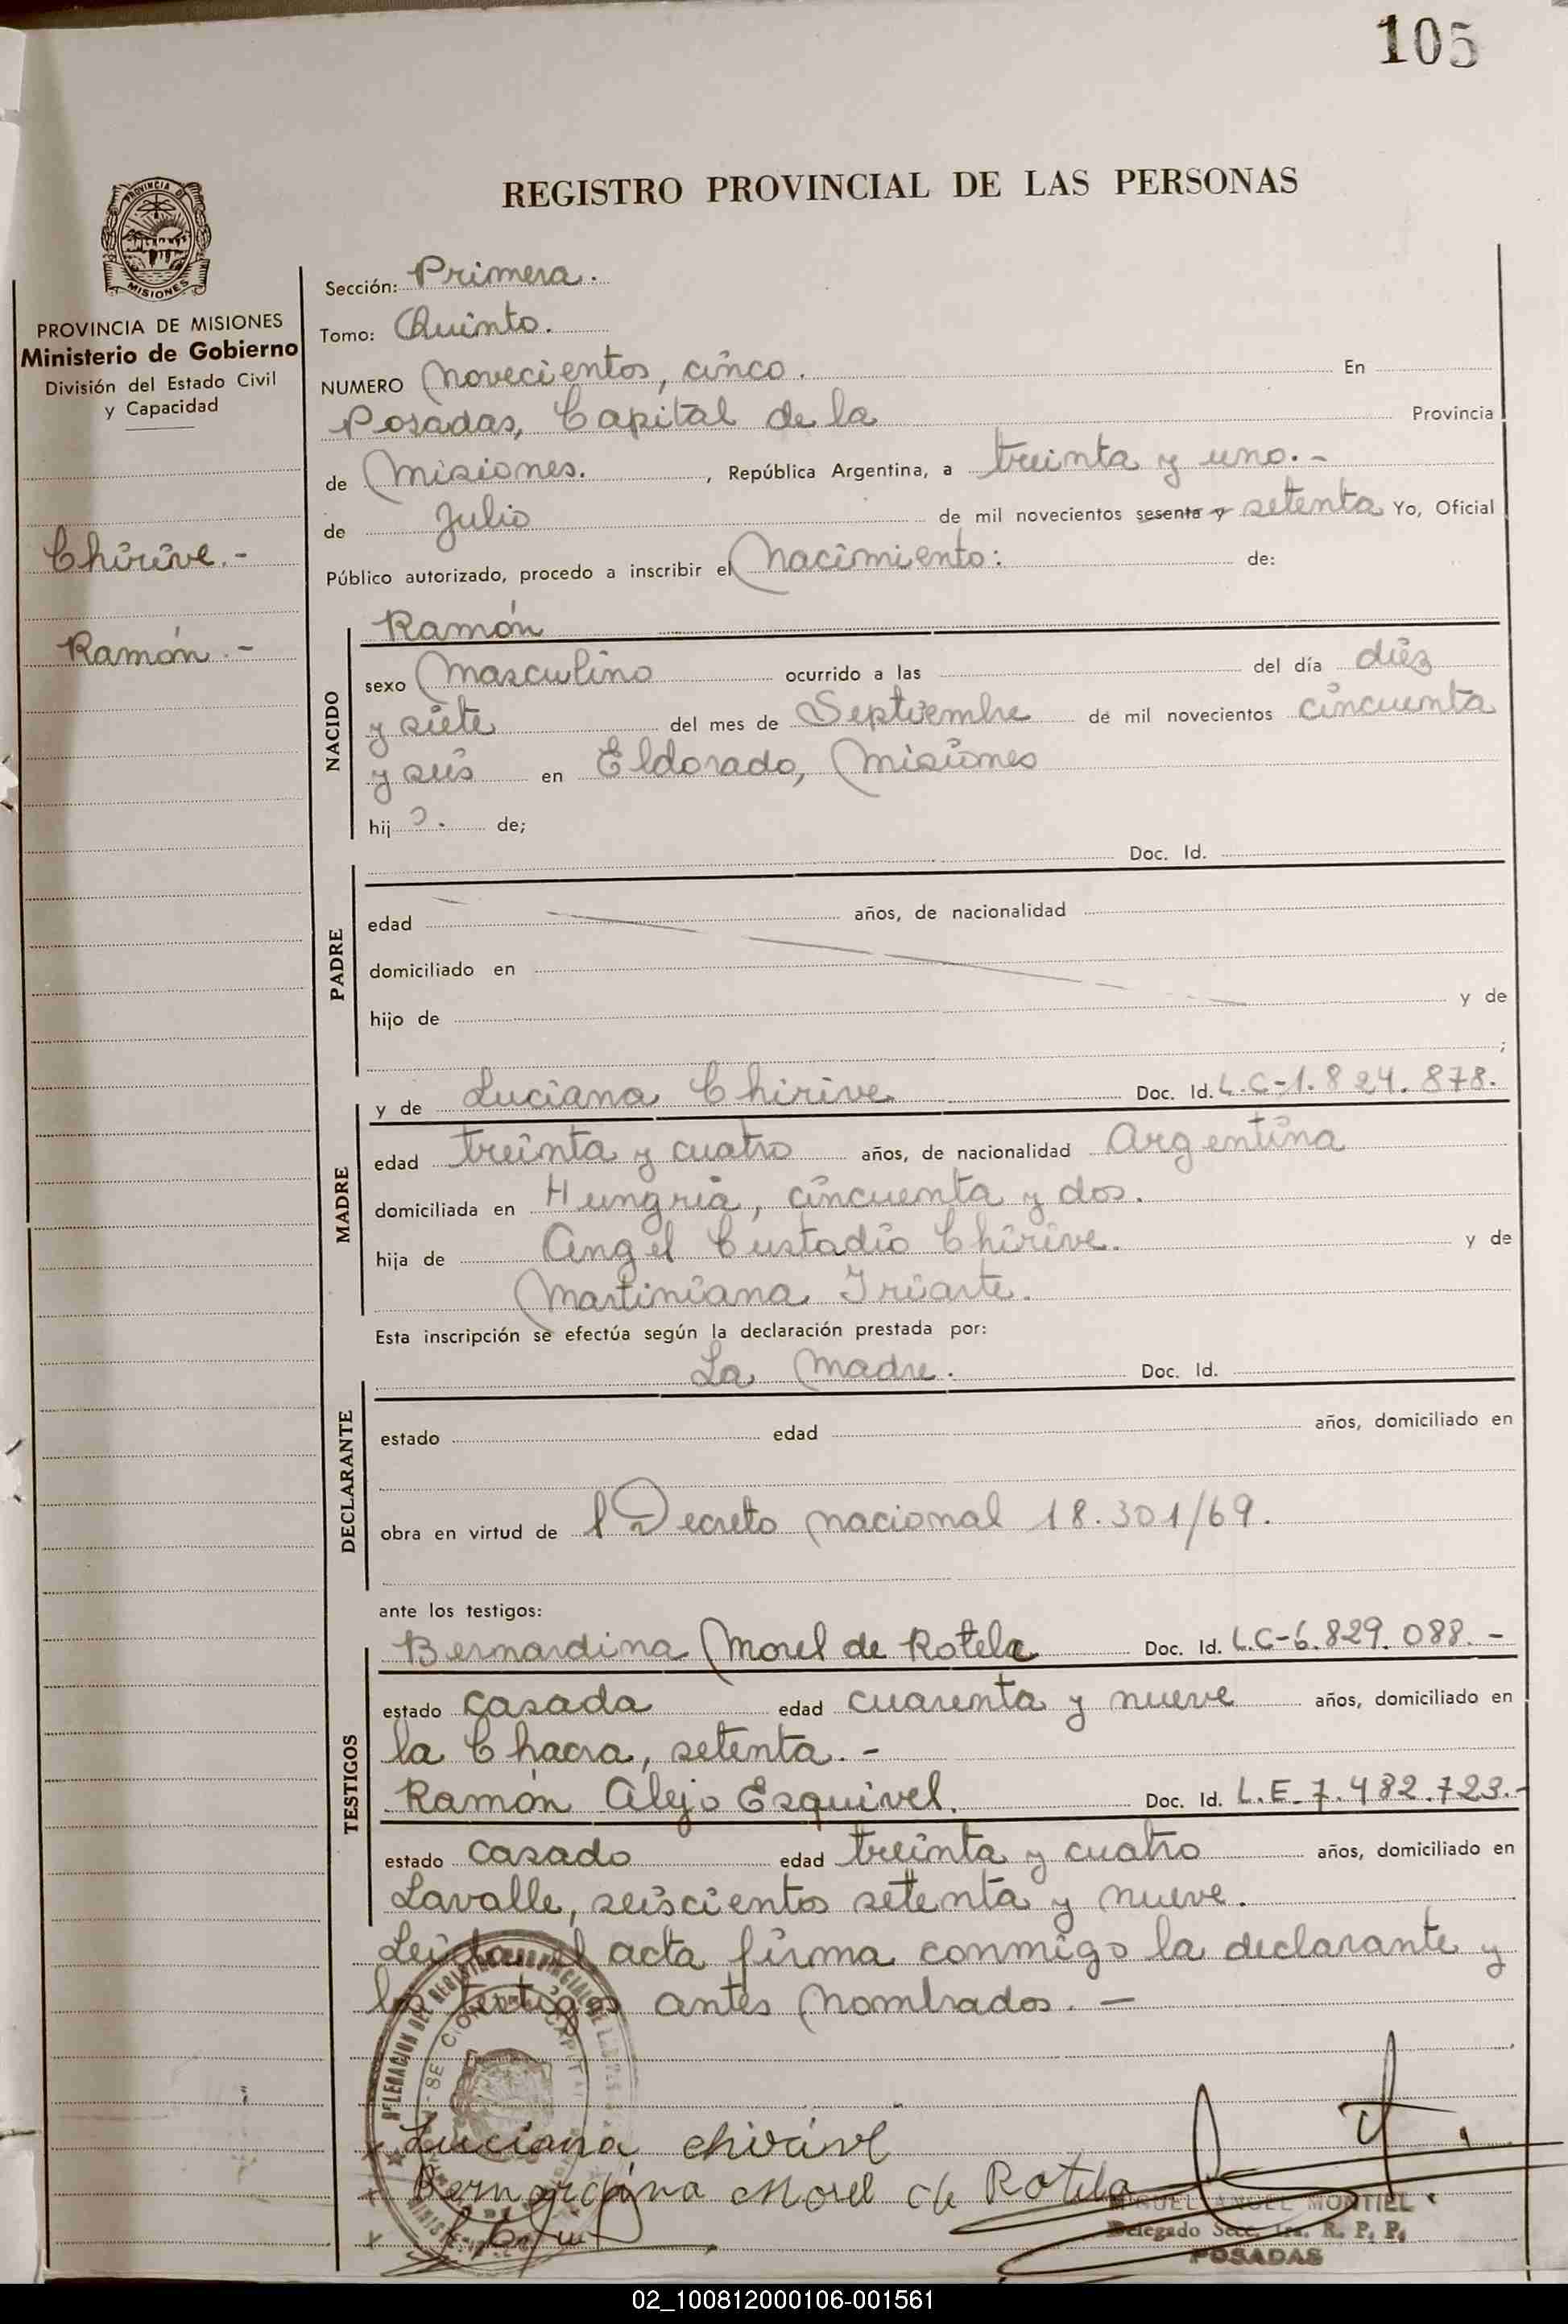 105
REGISTRO PROVINCIAL DE LAS PERSONAS
PROVINCIA DE MISIONES
MISIONES
PROVINCIA DE MISIONES
Ministerio de Gobierno
División del Estado Civil
y Capacidad
Chirive.-
Ramón.-
Sección: Primera.
Tomo: Quinto.
NUMERO Novecientos, cinco. En
Posadas, Capital de la Provincia
de Misiones. , República Argentina, a treinta y uno.-
de Julio de mil novecientos sesenta y setenta Yo, Oficial
Público autorizado, procedo a inscribir el Nacimiento: de:
Ramón
NACIDO
sexo Masculino ocurrido a las del día diez
y siete del mes de Septiembre de mil novecientos cincuenta
y seis en Eldorado, Misiones
hij o. de;
Doc. Id.
PADRE
edad años, de nacionalidad
domiciliado en
hijo de y de
;
y de Luciana Chirive Doc. Id. L.C-1.824.878.
MADRE
edad treinta y cuatro años, de nacionalidad Argentina
domiciliada en Hungria, cincuenta y dos.
hija de Angel Custodio Chirive. y de
Martiniana Iriarte.
Esta inscripción se efectúa según la declaración prestada por:
La Madre. Doc. Id.
DECLARANTE
estado edad años, domiciliado en
obra en virtud de l Decreto nacional 18.301/69.
ante los testigos:
Bernardina Morel de Rotela Doc. Id. L.C-6.829.088.-
TESTIGOS
estado casada edad cuarenta y nueve años, domiciliado en
la Chacra, setenta.-
Ramón Alejo Esquivel. Doc. Id. L.E-7.482.723.-
estado casado edad treinta y cuatro años, domiciliado en
Lavalle, seiscientos setenta y nueve.
Leida el acta firma conmigo la declarante y
los testigos antes nombrados.-
Luciana
Bernardina Morel de Rotela
MIGUEL ANGEL MONTIEL
Delegado Secc. 1ra. R. P. P.
POSADAS
02_100812000106-001561